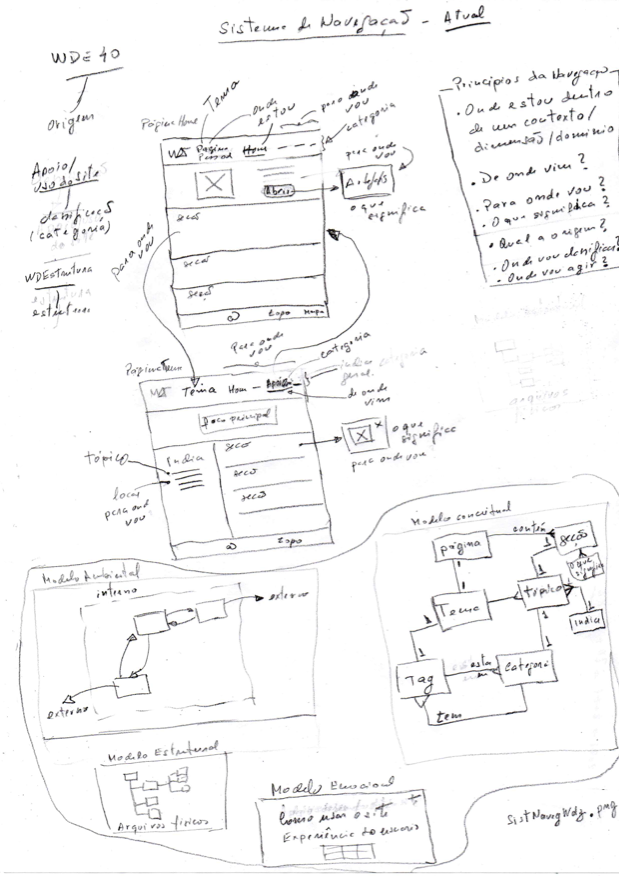 Sistema de Navegação - Atual
WDE 40
origem
Apoio/
uso do site
classificação
(categoria)
WDEstrutura
estrutura
Página Home
Tema
onde
estou
para onde
vou
categoria
Página
Pessoal
Home
Abrir
para onde
vou
o que
significa
seção
seção
seção
topo
Mapa
para onde
vou
Princípios da Navegação
• Onde estou dentro
de um contexto/
dimensão/domínio
• De onde vim?
• Para onde vou?
• O que significa?
• Qual a origem?
• Onde vou classificar?
• Onde vou agir?
para onde
vou
categoria
índice categoria
geral
Página Tema
Tema Home - Apoio
de onde
vim
Foco principal
Índice
tópico
local
para onde
vou
seção
seção
seção
topo
o que
significa
para onde vou
arquivos
físicos
Modelo conceitual
página
contém
seção
o que
significa
Tema
tópico
índice
1
1
1
1
1
1
Tag
está
em
Categoria
tem
Modelo Ambiental
interno
externo
externo
Modelo Estrutural
Arquivos físicos
Modelo Emocional
Como usar o site
Experiência do usuário
SistNavegWdz.png